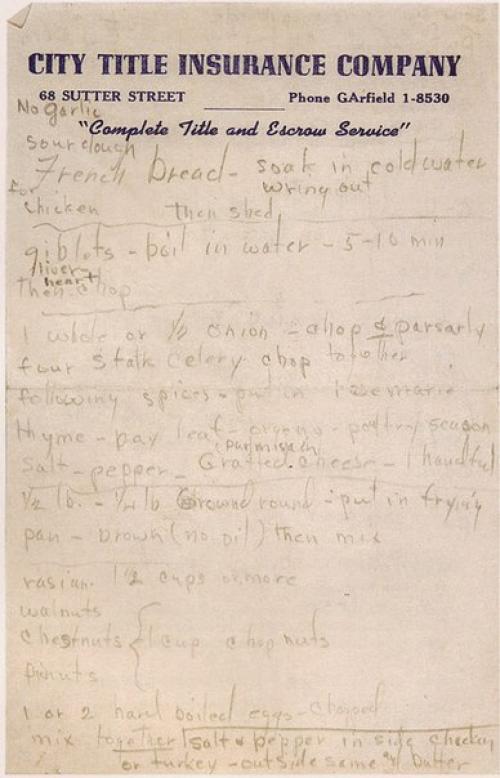 CITY TITLE INSURANCE COMPANY
68 SUTTER STREET
Phone GArfield 1-8530
"Complete Title and Escrow Service"
No Garlic
sourdough
French Bread - soak in cold water
wring out
for
chicken then shed
giblets - boil in water - 5-10 min
liver -
heart
then chop
1 whole or 1/2 onion - chop & parsarly
four stalk celery chop together
following spices - put in rosemarie
thyme - bay leaf - oregno - poltry season
(parmisach
salt - pepper - Gratted cheese - 1 handful
1/2 lb. - 1/4 lb Ground round - put in frying
pan - brown (no oil) then mix
rasian. 1 1/2 cups or more
walnuts
chestnuts { 1 cup chop nuts
pinuts
1 or 2 hard boiled eggs - chopped
mix together | salt & pepper in side chicken
or turkey - outside same butter